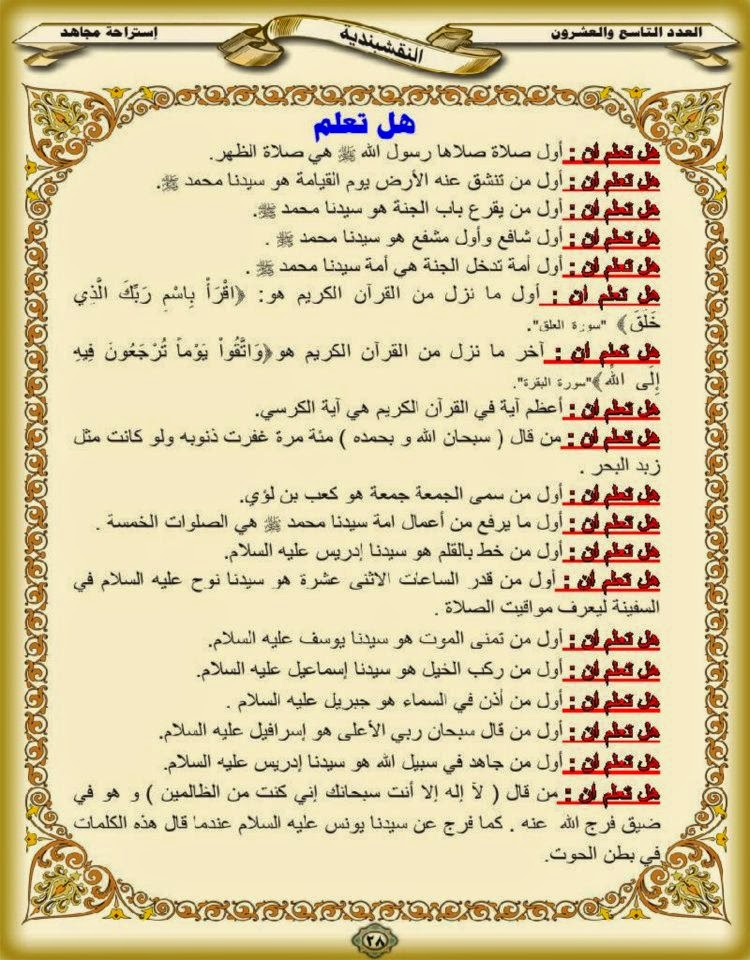 العدد التاسع والعشرون
النقشبندية
إستراحة مجاهد
هل تعلم
هل تعلم أن : أول صلاة صلاها رسول الله ﷺ هي صلاة الظهر.
هل تعلم أن : أول من تنشق عنه الأرض يوم القيامة هو سيدنا محمد ﷺ.
هل تعلم أن : أول من يقرع باب الجنة هو سيدنا محمد ﷺ.
هل تعلم أن : أول شافع وأول مشفع هو سيدنا محمد ﷺ .
هل تعلم أن : أول أمة تدخل الجنة هي أمة سيدنا محمد ﷺ .
هل تعلم أن : أول ما نزل من القرآن الكريم هو: ﴿اقْرَأْ بِاسْمِ رَبِّكَ الَّذِي
خَلَقَ﴾ "سورة العلق".
هل تعلم أن : آخر ما نزل من القرآن الكريم هو﴿وَاتَّقُواْ يَوْماً تُرْجَعُونَ فِيهِ
إِلَى اللَّهِ﴾"سورة البقرة".
هل تعلم أن : أعظم آية في القرآن الكريم هي آية الكرسي.
هل تعلم أن : من قال ( سبحان الله و بحمده ) مئة مرة غفرت ذنوبه ولو كانت مثل
زبد البحر .
هل تعلم أن : أول من سمى الجمعة جمعة هو كعب بن لؤي.
هل تعلم أن : أول ما يرفع من أعمال امة سيدنا محمد ﷺ هي الصلوات الخمسة .
هل تعلم أن : أول من خط بالقلم هو سيدنا إدريس عليه السلام.
هل تعلم أن : أول من قدر الساعات الاثنى عشرة هو سيدنا نوح عليه السلام في
السفينة ليعرف مواقيت الصلاة .
هل تعلم أن : أول من تمنى الموت هو سيدنا يوسف عليه السلام.
هل تعلم أن : أول من ركب الخيل هو سيدنا إسماعيل عليه السلام.
هل تعلم أن : أول من أذن في السماء هو جبريل عليه السلام .
هل تعلم أن : أول من قال سبحان ربي الأعلى هو إسرافيل عليه السلام.
هل تعلم أن : أول من جاهد في سبيل الله هو سيدنا إدريس عليه السلام.
هل تعلم أن : من قال ( لآ إله إلا أنت سبحانك إني كنت من الظالمين ) و هو في
ضيق فرج الله عنه . كما فرج عن سيدنا يونس عليه السلام عندما قال هذه الكلمات
في بطن الحوت.
٢٨